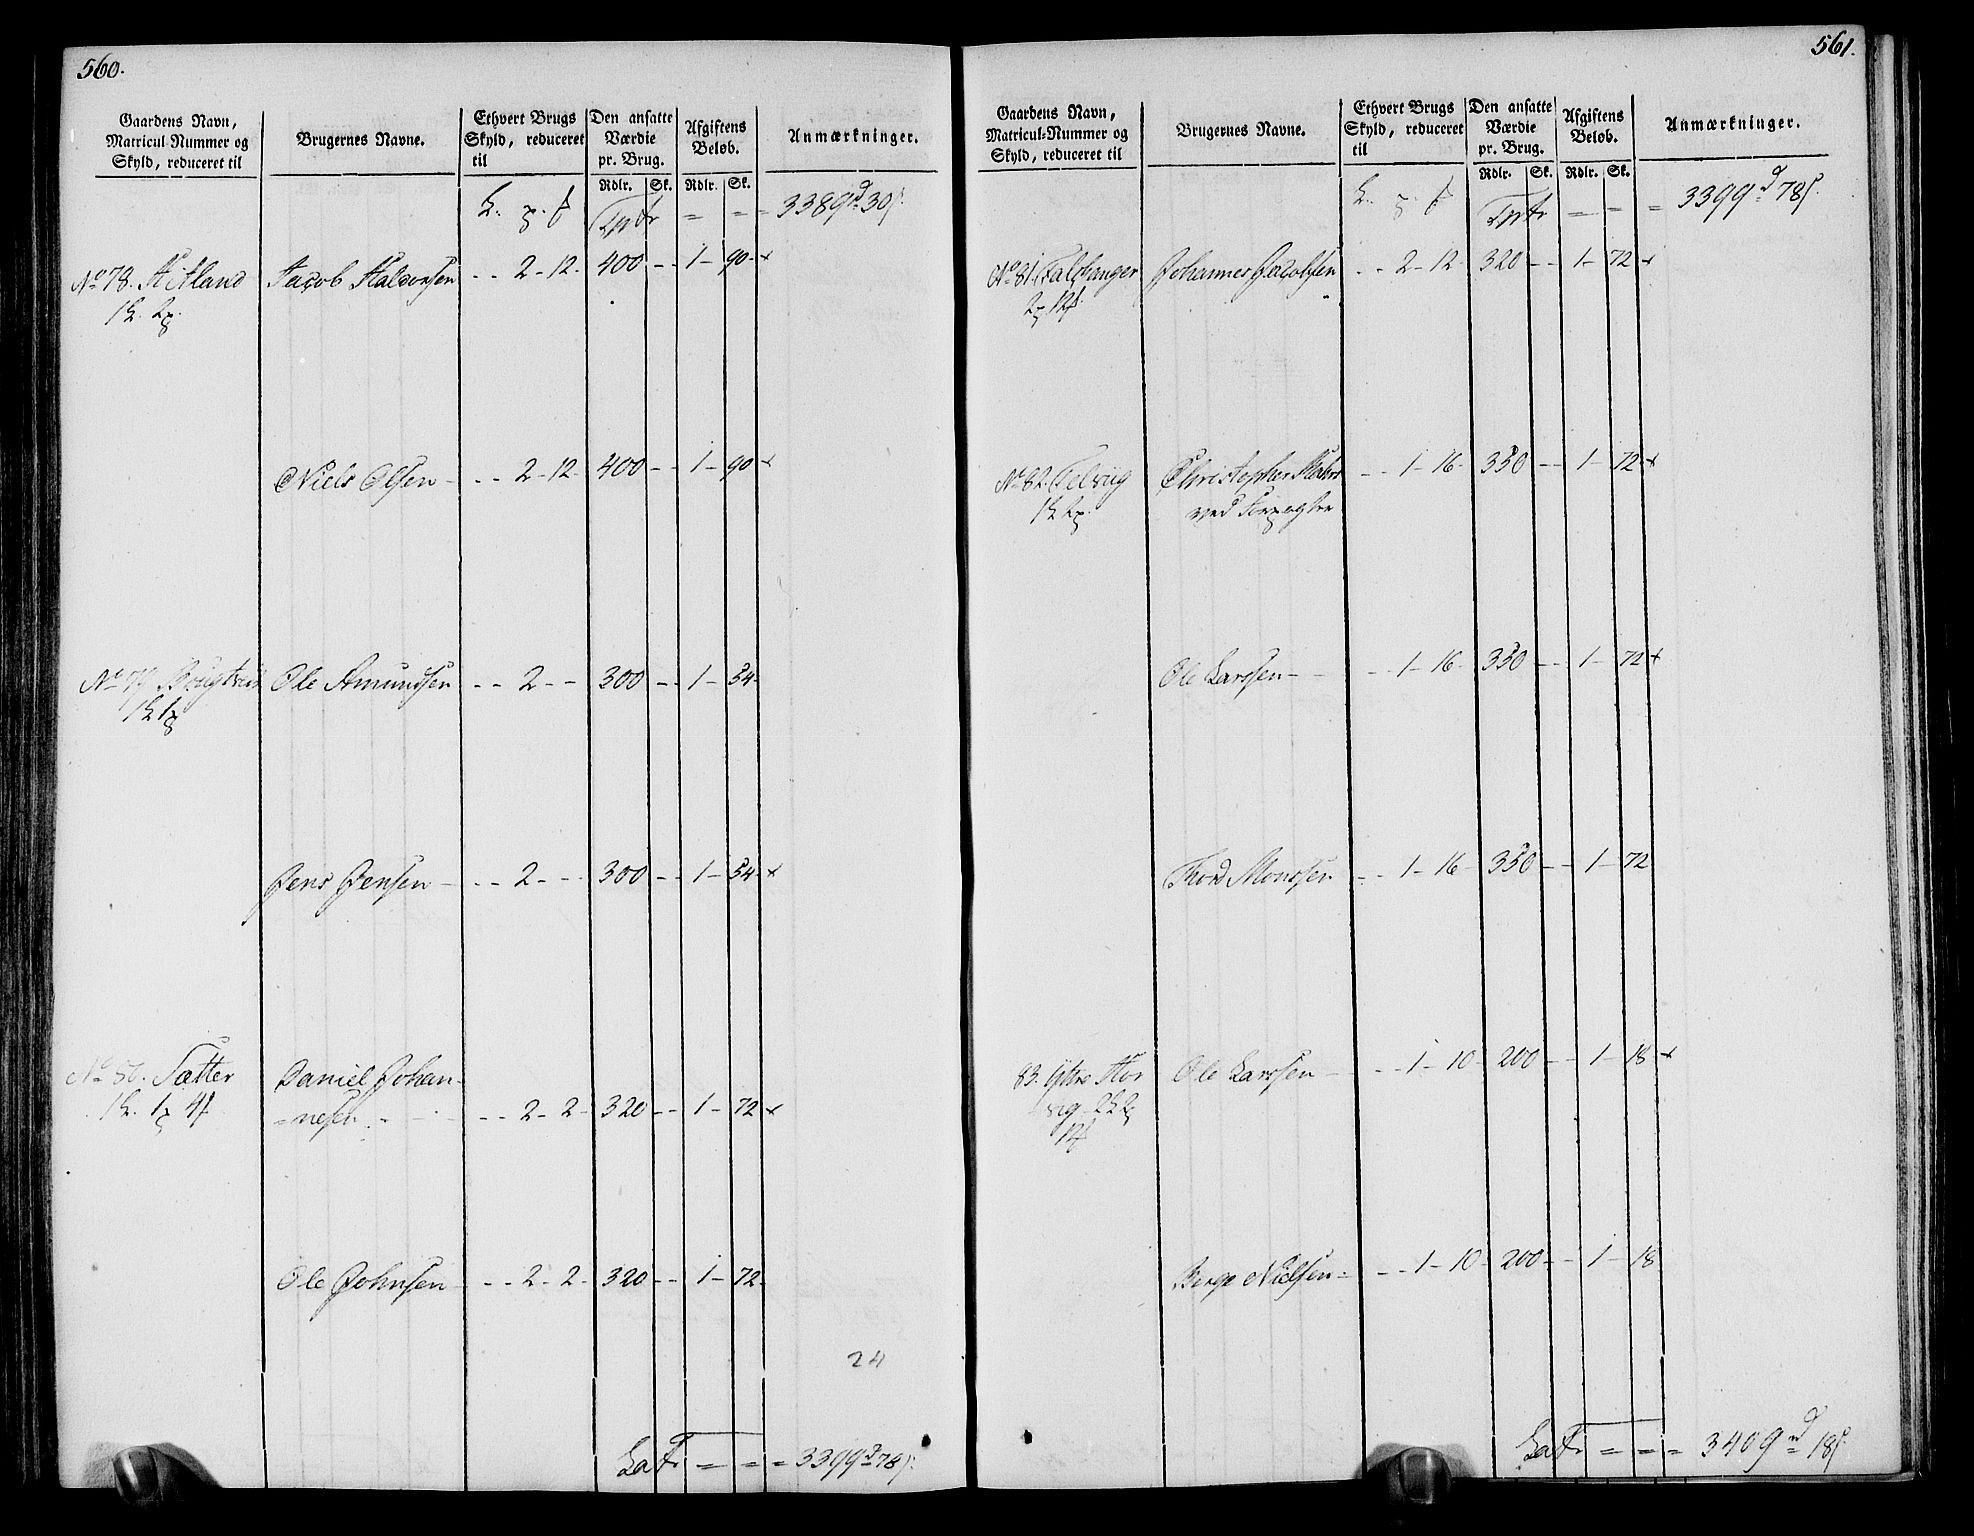 560.
Gaardens Navn,
Matricul-Nummer og
Skyld, reduceret til
Brugernes Navne.
Ethvert Brugs
Skyld, reduceret
til
Den ansatte
Værdie
pr. Brug.
Afgiftens
Beløb.
Anmærkninger.
Rdlr. Sk. Rdlr. Sk.
Trptr = = = 3389 d 30 s.
No 78. Jacob Halvorsen - - 2 - 12. 400 - - 1 - 90 - x
Niels Olsen - - - 2 - 12 - 400 - - 1 - 90 x
Ole Amundsen - - 2 - - 300 - - 1 - 54 -
Jens Jensen - - - 2 - - 300 - - 1 - 54 - x
Sætter Daniel Johan-
= nesen - - 2 - 2 - 320 - - 1 - 72 x
Ole Johnsen - - - 2 - 2 - 320 - - 1 - 72 -
24
Lat = = = 3399 d 78 s.
561.
Gaardens Navn,
Matricul-Nummer og
Skyld, reduceret til
Brugernes Navne.
Ethvert Brugs
Skyld, reduceret
til
Den ansatte
Værdie
pr. Brug.
Afgiftens
Beløb.
Anmærkninger.
Rdlr. Sk. Rdlr. Sk.
Trptr = = = 3399 d 78 s
No 81. Falchanger Johannes Jacobsen - - 2 - 12 - 320 - - 1 - 72 x
No 82. Telviig Christopher - - 1 - 16 - 350 - - 1 - 72 x
ved Forpagter
Ole Larssen - - - 1 - 16 - 350 - - 1 - 72 x
Thord Monssen - - 1 - 16 - 350 - - 1 - 72
83. Ytre Hor Ole Larssen - - - 1 - 10 - 200 - - 1 - 18 x
vig
Berge Nielsen = - - 1 - 10 - 200 - - 1 - 18
Lat = = = 3409 d 18 s